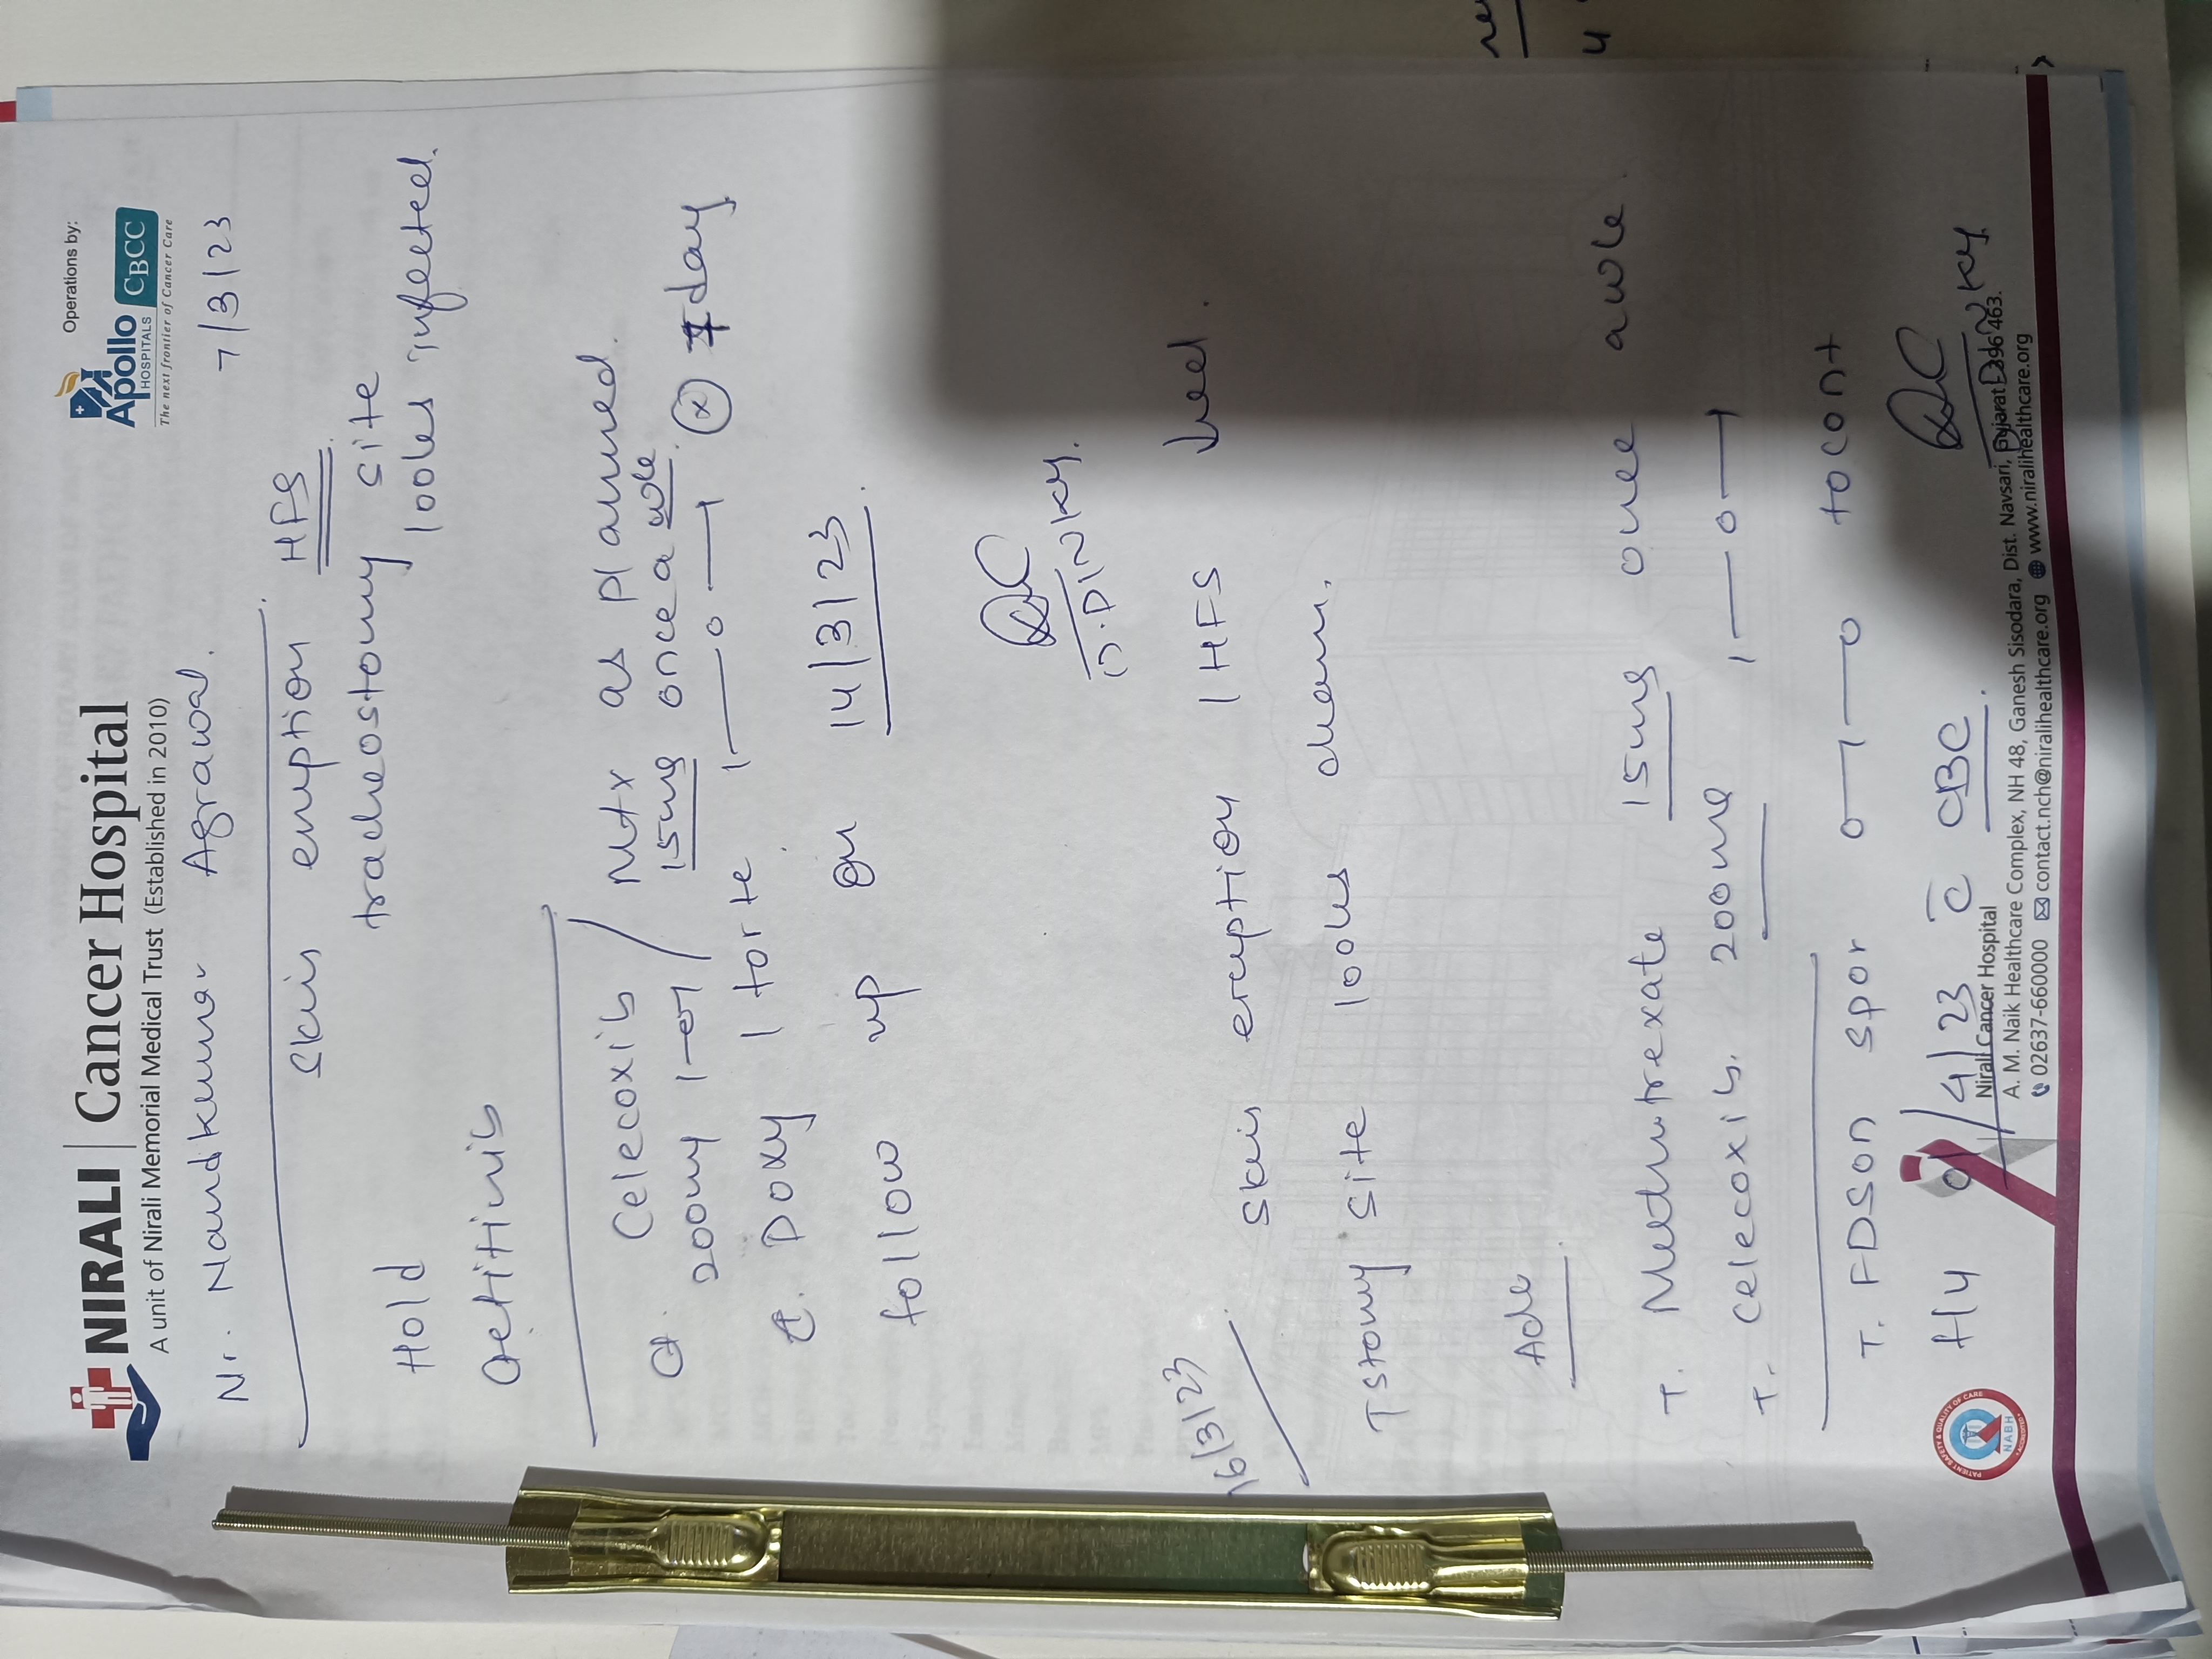 NIRALI | Cancer Hospital
A unit of Nirali Memorial Medical Trust (Established in 2010)
Operations by:
Apollo
HOSPITALS
CBCC
The next frontier of Cancer Care
Mr. Nandkumar Agrawal.
7/3/23
Skin eruption HFS
tracheostomy site
looks infected.
Hold
Gefitinib
Celecoxib / Mtx as planned.
200mg 1-0-1 / 15mg once a wk
C. Doxy 1 forte 1—0—1 x 7 day
follow up on 14/3/23
DC
D. DINKY.
16/3/23
Skin eruption / HFS ↓sed.
Tstomy site looks clean.
Adv
T. Methotrexate 15mg once a wk
T. Celecoxib. 200mg 1—0—1
T. FDSON spor 0—1—0 to cont
/4/23 c̄ CBC.
DC
D. DINKY
PATIENT SAFETY & QUALITY OF CARE
NABH
ACCREDITED
Nirali Cancer Hospital
A. M. Naik Healthcare Complex, NH 48, Ganesh Sisodara, Dist. Navsari, Gujarat - 396 463.
02637-660000 contact.nch@niralihealthcare.org www.niralihealthcare.org